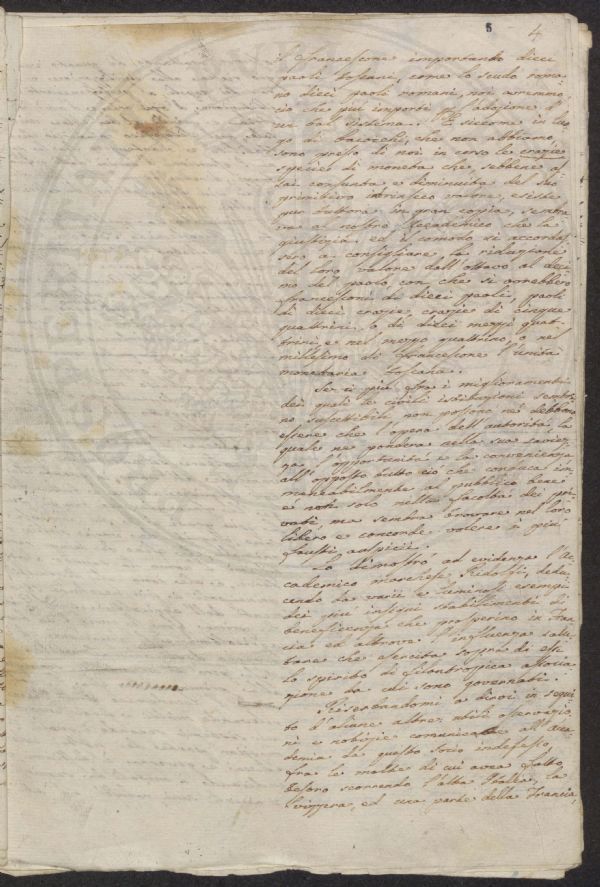 5 4
il francescone importando dieci
paoli toscani, come lo scudo roma-
no dieci paoli romani, noi avremmo
ciò che più importi nell'adozione d'
un tal sistema. E siccome in luo-
go di baiocchi, che non abbiamo,
sono presso di noi in corso le crazie
specie di moneta che sebbene as-
sai consunta, e diminuita del suo
primitivo intrinseco valore, esiste
pur tuttora in gran copia, sembra-
va al nostro Accademico che la
giustizia, ed il comodo si accordas-
sero a consigliare la riduzione
del loro valore dall'ottavo al deci-
mo del paolo, con che si avrebbero
francesconi di dieci paoli, paoli
di dieci crazie, crazie di cinque
quattrini, o di dieci mezzi quat-
trini, e nel mezzo quattrino, o nel
millesimo di francescone l'unità
monetaria toscana.
Se vi più fra i miglioramenti
dei quali le civili istituzioni sembra-
no suscettibili non possono nè debbono
essere che l'opera dell'autorità la
quale ne pondera nella sua savièz-
za l'opportunità e la convenienza
all'opposto tutto ciò che conduca im-
mancabilmente al pubblico bene
è non solo nella facoltà dei pri-
vati, ma sembra trovare nel loro
libero e concorde volere i più
fausti auspicii.
Lo dimostrò ad evidenza l'Ac-
cademico marchese Ridolfi, dedu-
cendo da varii e luminosi esempi
dei più insigni stabilimenti di
beneficenza che prosperino in Fran-
cia ed altrove l'influenza salu-
tare che esercita sopra di essi
lo spirito di filantropica associa-
zione da cui sono governati.
Riserbandomi a dirvi in segui-
to d'alcune altre utili osservazio-
ni, e notizie comunicate all'Acca-
demia da questo socio indefesso,
fra le molte di cui avea fatto
tesoro scorrendo l'alta Italia, la
Svizzera, ed una parte della Francia,